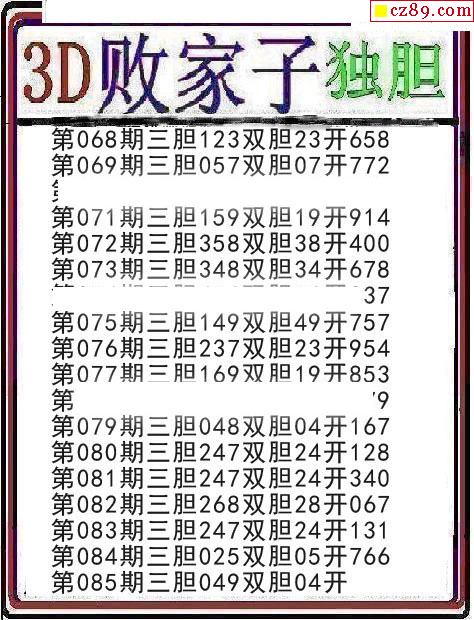 cz89.com
3D败家子独胆
第068期三胆123双胆23开658
第069期三胆057双胆07开772
第071期三胆159双胆19开914
第072期三胆358双胆38开400
第073期三胆348双胆34开678
37
第075期三胆149双胆49开757
第076期三胆237双胆23开954
第077期三胆169双胆19开853
第 9
第079期三胆048双胆04开167
第080期三胆247双胆24开128
第081期三胆247双胆24开340
第082期三胆268双胆28开067
第083期三胆247双胆24开131
第084期三胆025双胆05开766
第085期三胆049双胆04开